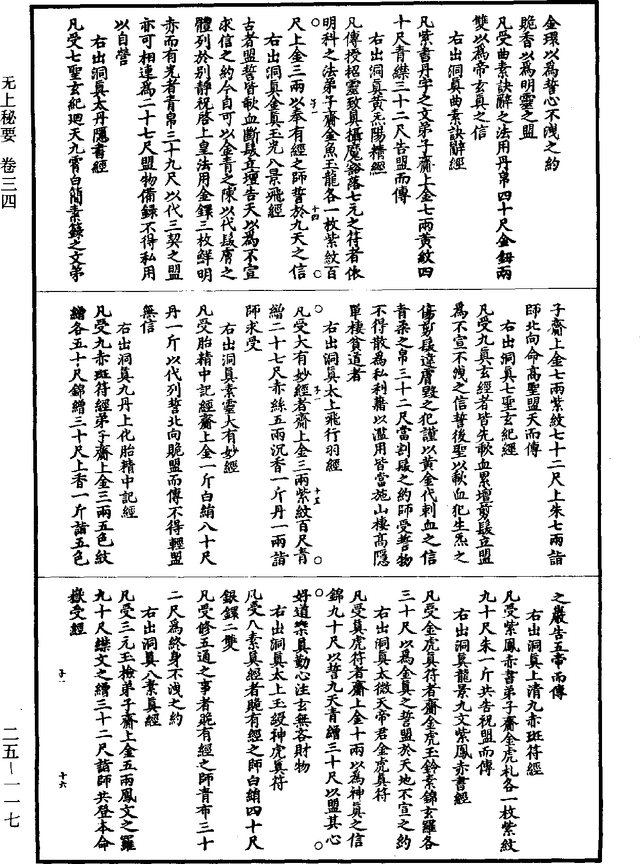 金環以為誓心不洩之約
脆香以為明靈之盟
凡受曲素訣辭之法用丹帛四十尺金鈕兩
雙以為帝玄真之信
右出洞真曲素訣辭經
凡紫書丹字之文弟子齎上金七兩黃紋四
十尺青襟三十二尺告盟而傳
右出洞真黃炁陽精經
凡傳授招靈致真攝魔豁落七元之符者依
明科之法弟子齎金魚玉龍各一枚紫紋百
尺上金三兩以奉有經之師誓於九天之信
右出洞真金真玉光八景飛經
古者盟誓皆歃血斷髮立壇告天以為不宣
求信之約今自可以金青之陳以代髮膚之
體列於別靜稅啓上皇法用金鐶三枚鮮明
赤而有光者青帛三十九尺以代三契之盟
亦可相連為二十七尺盟物備錄不得私用
以自營
右出洞真太丹隱書經
凡受七聖玄紀迴天九霄白簡素籙之文弟
子齎上金七兩紫紋七十二尺上朱七兩詣
師北向命高聖盟天而傳
右出洞真七聖玄紀經
凡受九真玄經者皆先歃血累壇剪髮立盟
為不宣不洩之信誓後聖以歃血犯生炁之
傷剪髮違膚毀之犯謹以黃金代刺血之信
青柔之帛三十二尺當割髮之約師受誓物
不得散為私利藉以濫用皆當施山棲高隱
單棲貧道者
右出洞真太上飛行羽經
凡受大有妙經者齎上金三兩紫紋百尺青
繒二十七尺赤絲五兩沉香一斤丹一兩詣
師求受
右出洞真素靈大有妙經
凡受胎精中記經齎上金一斤白絹八十尺
丹一斤以代列誓北向脆盟而傳不得輕盟
無信
右出洞真九丹上化胎精中記經
凡受九赤班符經弟子齎上金三兩五色紋
繒各五十尺錦繒三十尺上香一斤詣五色
之嚴告五帝而傳
右出洞真上清九赤班符經
凡受紫鳳赤書弟子齎金虎札各一枚紫紋
九十尺朱一斤共告祝盟而傳
右出洞真龍景九文紫鳳赤書經
凡受金虎真符者齎金虎玉鈴素錦玄羅各
三十尺以為金真之誓盟於天地不宣之約
右出洞真太微天帝君金虎真符
凡受真虎符者齎上金十兩以為神真之信
錦九十尺以誓九天青繒三十尺以盟其心
好道樂真勤心注玄無吝財物
右出洞真太上玉綬神虎真符
凡受八素真經者脆有經之師白絹四十尺
銀鐶二雙
凡受修五通之事者脆有經之師青布三十
二尺為終身不洩之約
右出洞真八素真經
凡受三元玉檢弟子齎上金五兩鳳文之羅
九十尺緤文之繒三十二尺詣師共登本命
嶽受經
子一
十四
子一
十五
子一
十六
无上秘要 卷三四
二五—一一七